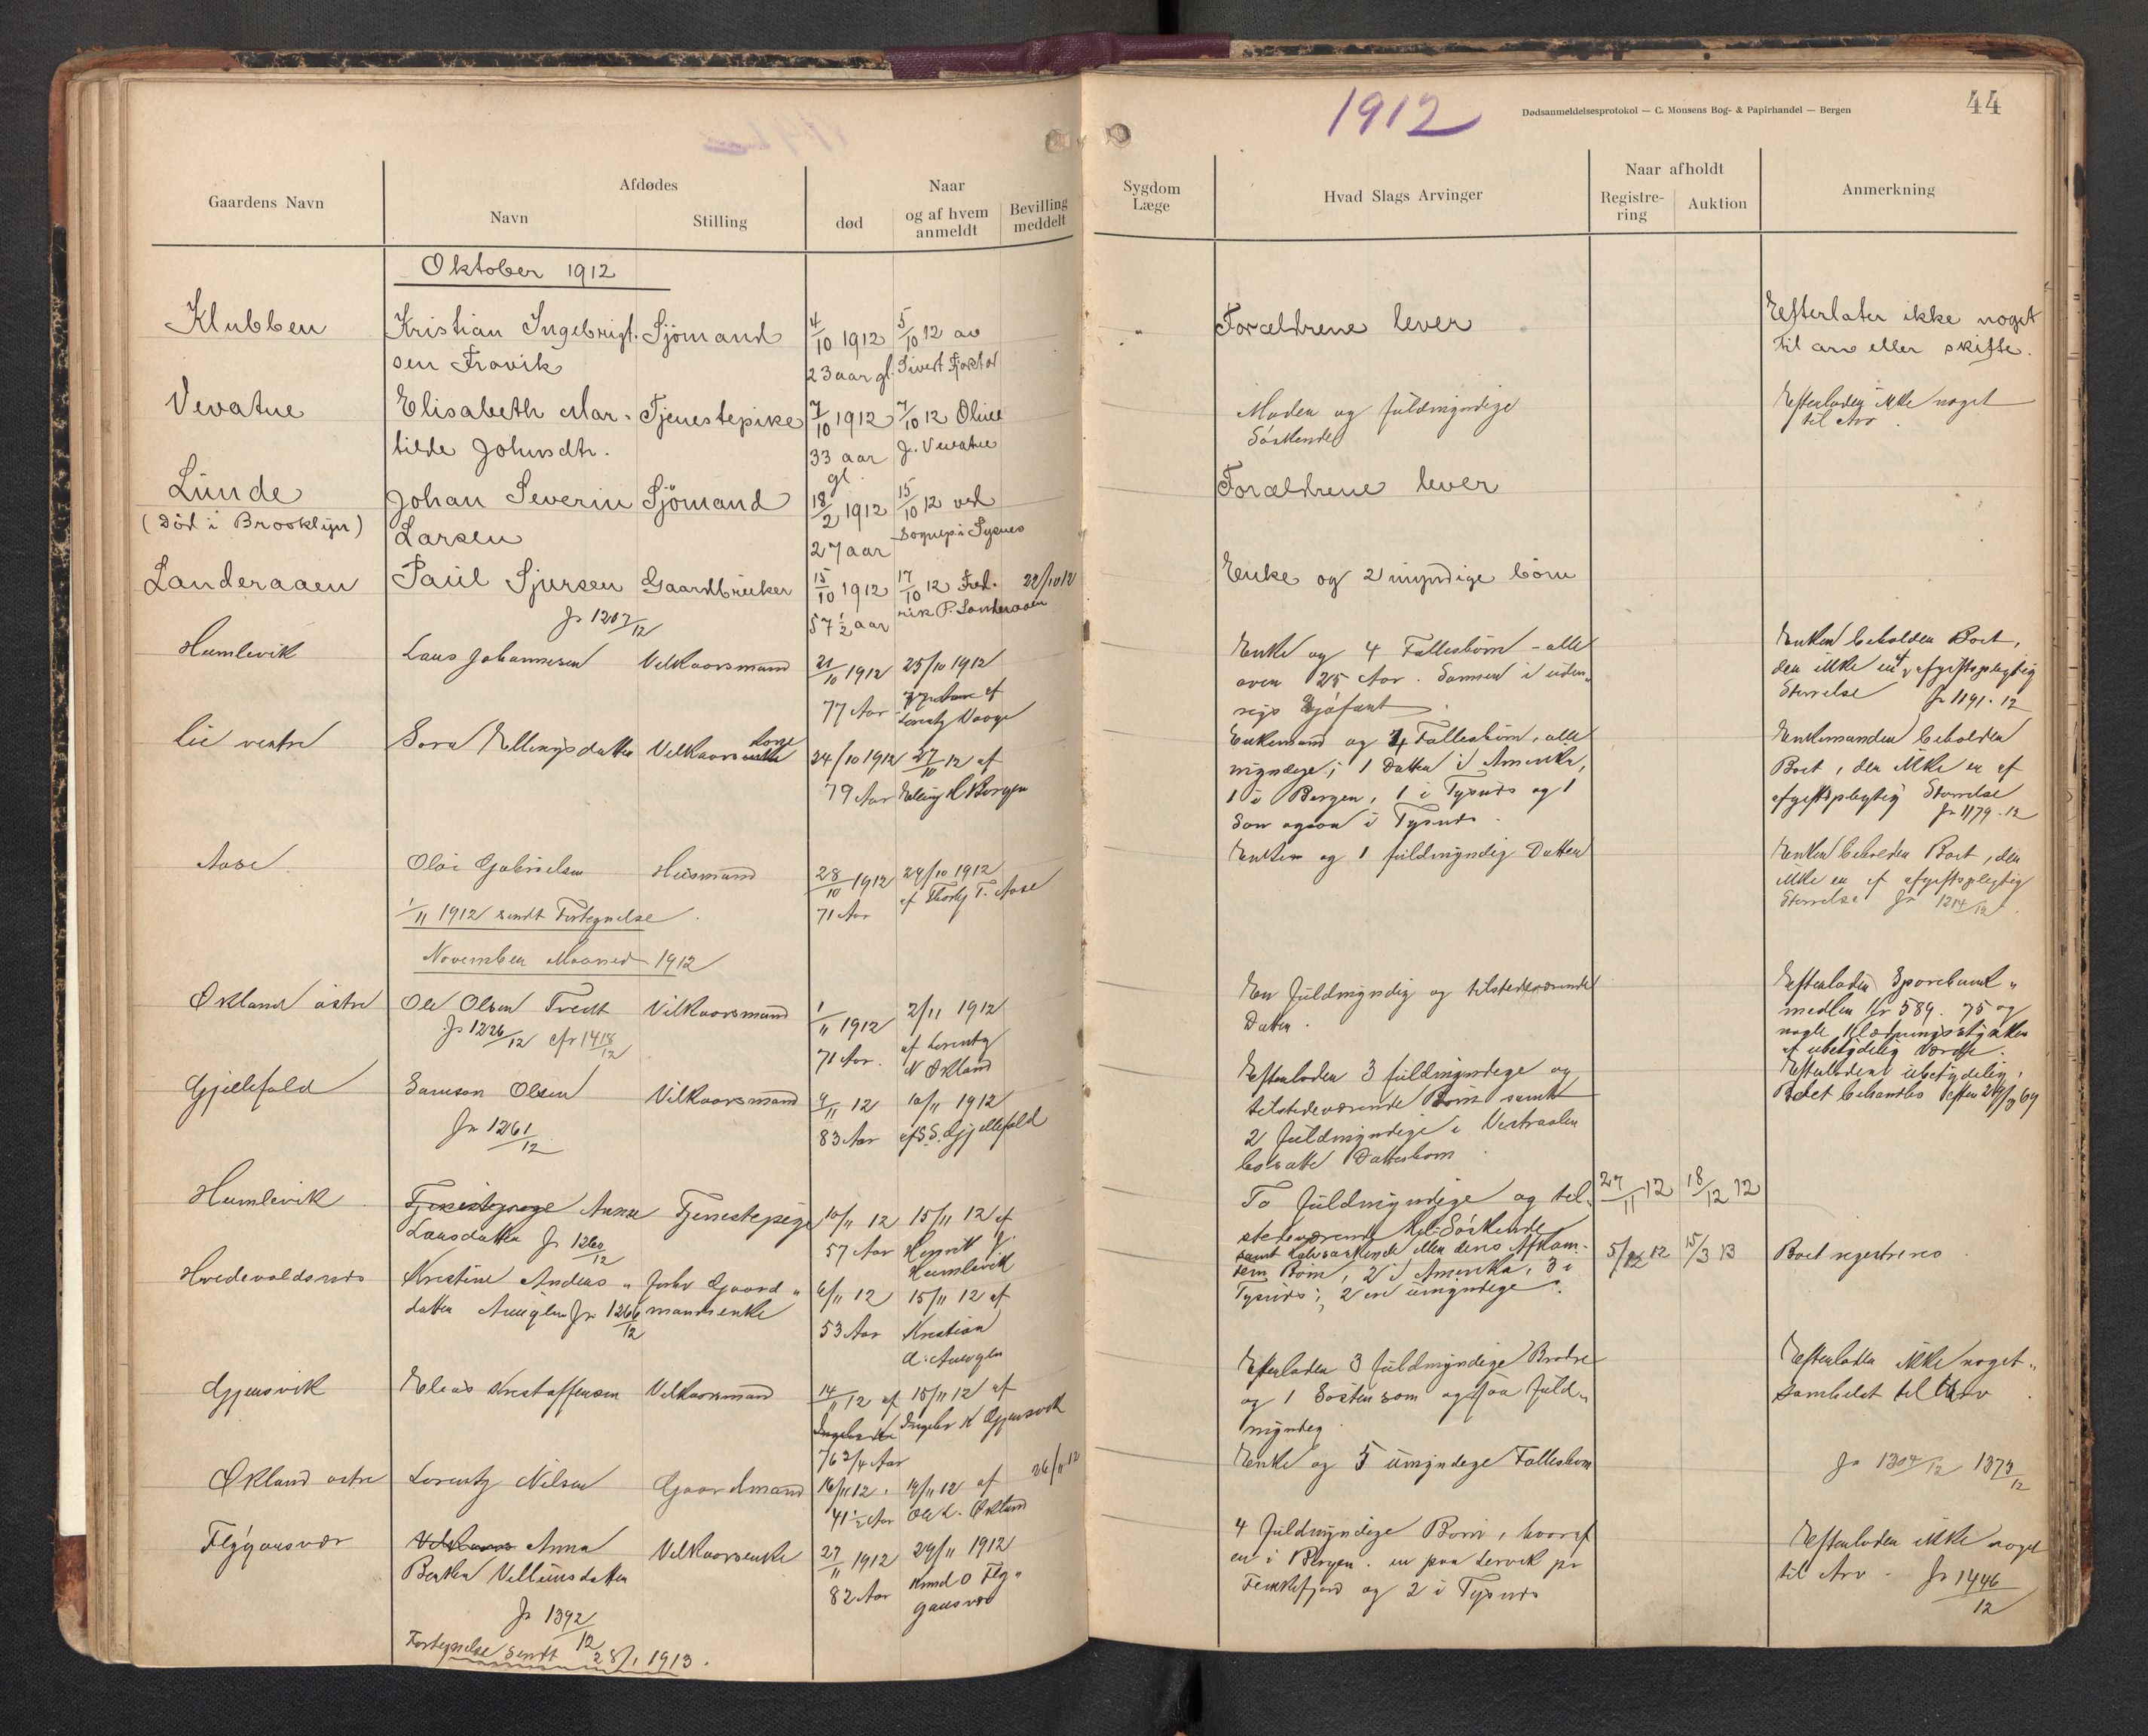 1912
Dødsanmeldelsesprotokol — C. Monsens Bog- & Papirhandel — Bergen
44
Gaardens Navn
Afdødes
Navn
Stilling
Naar
død
og af hvem anmeldt
Bevilling meddelt
Sygdom
Læge
Hvad Slags Arvinger
Naar afholdt
Registre-
ring
Auktion
Anmerkning
Oktober 1912
Klubben
Kristian Ingebrigt-
sen Fravik
Sjömand
4/10 1912
23 aar gl.
5/10 12 av
Sivert
Forældrene lever
Efterlater ikke noget
til arv eller skifte.
Vevatne
Elisabeth Mar-
tilde Johnsdtr.
Tjenestepike
7/10 1912
33 aar
gl.
7/10 12 Oline
J. Vevatne
Moder og fuldmyndige
Söskende
Efterlader ikke noget
til Arv
Lunde
(död i Brooklyn)
Johan Severin
Larsen
Sjömand
18/2 1912
27 aar
15/10 12 ved
Sognep. i Tysnes
Forældrene lever
Landeraaen
Paul Sjursen
Jr 1207/12
Gaardbruker
15/10 1912
57 1/2 aar
17/10 12 Fred-
rik P. Landeraaen
22/10 12
Enke og 2 myndige börn
Humlevik
Lars Johannesen
Velkaarsmand
21/10 1912
77 Aar
25/10 1912
af
Lorentz Vaage
Enke og 4 Fællesbörn - alle
over 25 Aar. Sönnen i uden-
rigs Sjöfart
Enken beholder Boet,
der ikke er af afgiftspligtig
Størrelse Jr 1191. 12
Lie vestre
Sara Ellingsdatter
Velkaarskone
24/10 1912
79 Aar
27/10 12 af
Elling L Borgen
Enkemand og 4 Fællesbörn, alle
myndige; 1 Datter i Amerika,
1 i Bergen, 1 i Tysnes og 1
Søn ogsaa i Tysnes.
Enkemanden beholder
Boet, der ikke er af
afgiftspligtig Størrelse
Jr 1179. 12
Aase
Olai Gabrielsen
Husmand
28/10 1912
71 Aar
29/10 1912
af T. Aase
Enken og 1 fuldmyndig Datter
Enken beholder Boet, der
ikke er af afgiftspligtig
Størrelse Jr 1214/12.
1/11 1912 sendt Fortegnelse
November Maaned 1912
Økland östre
Ole Olsen Tvedt
Jr 1226/12 cfr 1418/12
Vilkaarsmand
1/11 1912
71 Aar.
2/11 1912
af Lorentz
N Økland
En fuldmyndig og tilstedeværende
Datter.
Efterlader Sparebank-
midler kr 589. 75 og
nogle Klædningsstykker
af ubetydelig Værdi.
Gjellefald
Samson Olsen
Jr 1261/12
Vilkaarsmand
9/11 12
83 Aar
10/11 1912
af S. S. Gjellefald
Efterlader 3 fuldmyndige og
tilstedeværende Börn samt
2 fuldmyndige i Vestraalen
bosatte Dattersbörn
Efterladens ubetydelig,
Boet behandles efter
Humlevik
Tjenestepige Anna
Larsdatter Jr 1260/12
Tjenestepige
10/11 12
57 Aar
15/11 12 af
Henrik J.
Humlevik
To fuldmyndige og til-
stedeværende Hel-Söskende
samt Halvsöskende eller deres Afkom-
27/11 12
18/12 12
Hvedevoldsnes
Kristine Anders-
datter Jr 1266/12
Gaard-
mandsenke
6/11 12
53 Aar
15/11 12 af
Kristian
Börn, 2 i Amerika, 3 i
Tysnes; 2 er umyndige.
5/12 12
15/3 13
Boet registreres
Gjersvik
Elias Kristoffersen
Velkaarsmand
14/11 12 af
76 3/4 Aar
15/11 12 af
Ingebr K Gjersvik
Efterlader 3 fuldmyndige Brødre
og 1 Söster som ogsaa fuld-
myndig
Efterlader ikke noget
somhelst til Arv
Økland östre
Lorentz Nilsen
Gaardmand
16/11 12.
41 1/2 Aar
19/11 12 af
Ole L. Økland
26/11 12
Enke og 5 umyndige Fællesbörn
Jr 1304/12 1373/12
Flygansvær
Anna
Bertha Villumsdatter
Jr 1392/12
Velkaarsenke
27/11 1912
82 Aar
29/11 1912
Knud O Fly-
gansvær
4 fuldmyndige Börn, hvoraf
en i Bergen. en paa Lervik pr
og 2 i Tysnes
Efterlader ikke noget
til Arv. Jr 1446/12
Fortegnelse sendt 28/1 1913.